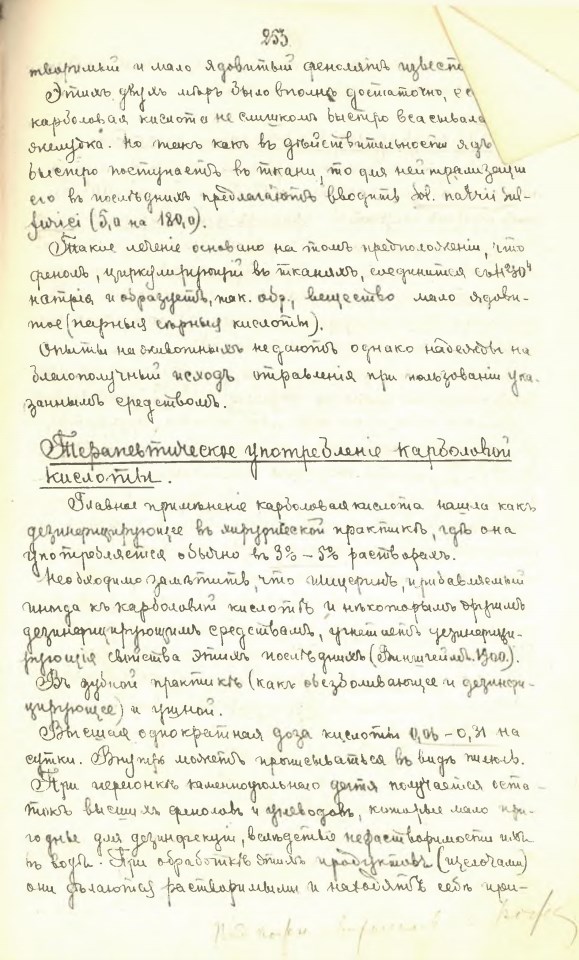 253
творимый и мало ядовитый фенолятъ извест
Этихъ двухъ мѣръ было вполнѣ достаточно, е
карболовая кислота не слишкомъ быстро всасывала
желудка. Но такъ какъ въ дѣйствительности ядъ
быстро поступаетъ въ ткани, то для нейтрализаціи
его въ послѣднихъ предлагаютъ вводить Sol. natrii sul-
furici (5,0 на 180,0).
Такое леченіе основано на томъ предположеніи, что
фенолъ, циркулирующій въ тканяхъ, соединится съ
натрія и образуетъ, так. обр., вещество мало ядови-
тое (парныя сѣрныя кислоты).
Опыты на животныхъ не даютъ однако надежды на
благополучный исходъ отравленія при пользованіи ука-
заннымъ средствомъ.
Терапевтическое употребленіе карболовой
кислоты.
Главное примѣненіе карболовая кислота нашла какъ
дезинфицирующее въ хирургической практикѣ, гдѣ она
употребляется обычно въ 3% – 5% растворахъ.
Необходимо замѣтить, что глицеринъ, прибавляемый
иногда къ карболовой кислотѣ и нѣкоторымъ другимъ
дезинфицирующимъ средствамъ, угнетаетъ дезинфици-
рующія свойства этихъ послѣднихъ (1900.).
Въ зубной практикѣ (какъ обезболивающее и дезинфи-
цирующее) и ушной.
Высшая однократная доза кислоты 0,06 – 0,31 на
сутки. Внутрь можетъ прописываться въ видѣ пилюль.
При перегонкѣ каменноугольнаго дегтя получается оста-
токъ высшихъ феноловъ и углеводовъ, которые мало при-
годны для дезинфекціи, вслѣдствіе нерастворимости ихъ
въ водѣ. При обработкѣ этихъ продуктовъ (щелочами)
они дѣлаются растворимыми и находятъ себѣ при-